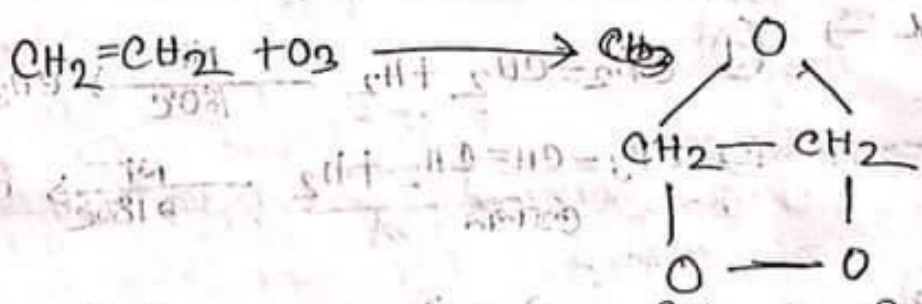 CH2=CH2 + O3 ⟶
O
CH2 — CH2
O — O